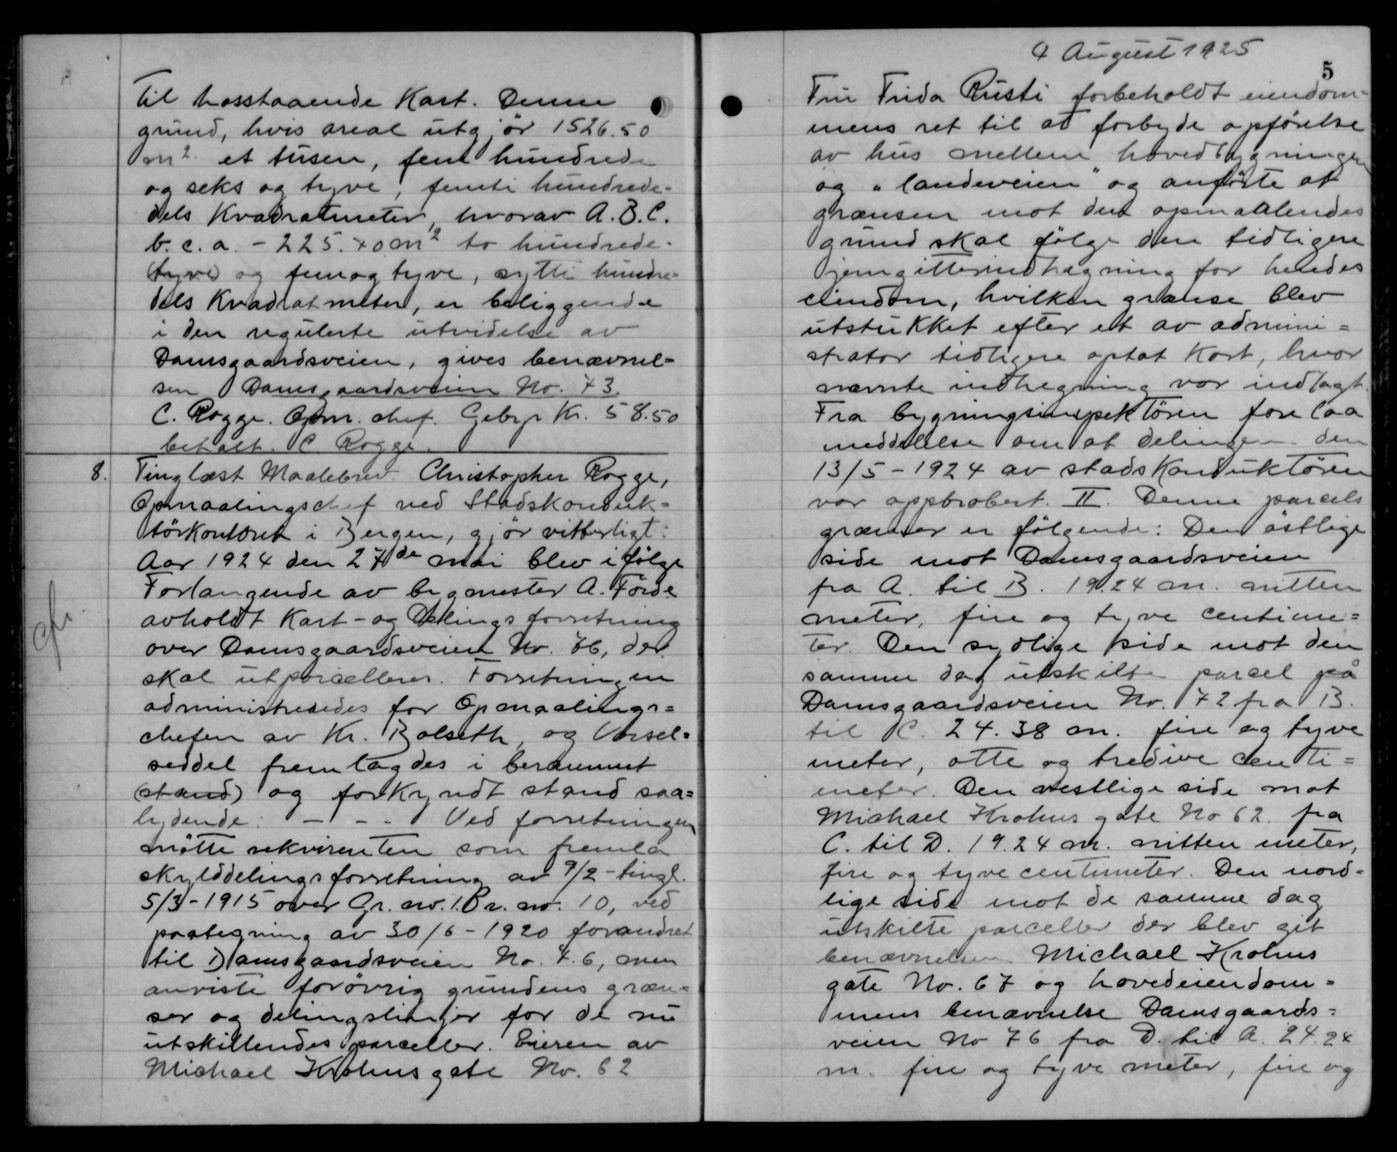 til hosstaaende Kart. Denne
grund, hvis areal utgjør 1526.50
m² et tusen, fem hundrede
og seks og tyve, femti hundrede-
dels Kvadratmeter, hvorav A.B.C.
b.c.a. - 225.70 m² to hundrede-
tyve og femogtyve, sytti hundre-
dels Kvadratmeter, er beliggende
i den regulerte utvidelse av
Damsgaardsveien, gives benævnel-
sen Damsgaardsveien No. 73.
C. Rogge. Opm. chef. Gebyr Kr. 58.50
betalt. C Rogge.
8. Tinglæst Maalebrev Christopher Rogge,
Opmaalingschef ved Stadskonduk-
törkontoret i Bergen, gjør vitterligt:
Aar 1924 den 27de mai blev ifølge
Forlangende av bygmester A. Förde
avholdt Kart- og Delingsforretning
over Damsgaardsveien No. 76, der
skal utparcelleres. Forretningen
administreredes for Opmaalings=
chefen av Kr. Bolseth, og Varsel=
seddel fremlagdes i berammet
(stand) og forkyndt stand saa=
lydende: - - - Ved forretningen
møtte rekvirenten som fremla
skylddelingsforretning av 9/2 - tingl.
5/3 - 1915 over Gr. nr. 1. Br. no. 10, ved
paategning av 30/6 - 1920 forandret
til Damsgaardsveien No. 76, men
anviste forövrig grundens græn=
ser og delingslinjer for de nu
utskillendes parceller. Eieren av
Michael Krohnsgate No. 62
cfr.
4 August 1925
5
Fru Frida Rusti forbeholdt eiendom-
mens ret til at forbyde opførelse
av hus mellem hovedbygningen
og "landeveien" og anførte at
grænsen mot den opmaalendes
grund skal følge den tidligere
jerngitterindhegning for hendes
eiendom, hvilken grænse blev
utstukket efter et av admini=
strator tidligere optat Kort, hvor
nævnte indhegning var indlagt.
Fra bygningsinspektören forelaa
meddelelse om at delingen den
13/5 - 1924 av stadskonduktören
var appbrobert. II. Denne parcels
grænser er følgende: Den östlige
side mot Damsgaardsveien
fra A. til B. 19.24 m. nitten
meter, fire og tyve centime=
ter. Den sydlige side mot den
samme dag utskilte parcel på
Damsgaardsveien No. 72 fra B.
til C. 24.38 m. fire og tyve
meter, otte og tredive centi=
meter. Den vestlige side mot
Michael Krohns gate No 62. fra
C. til D. 19.24 m. nitten meter,
fire og tyve centimeter. Den nord=
lige side mot de samme dag
utskilte parceller der blev git
benævnelsen Michael Krohns
gate No. 67 og hovedeiendom=
mens benævnelse Damsgaards=
veien No 76 fra D. til A. 24.24
m. fire og tyve meter, fire og